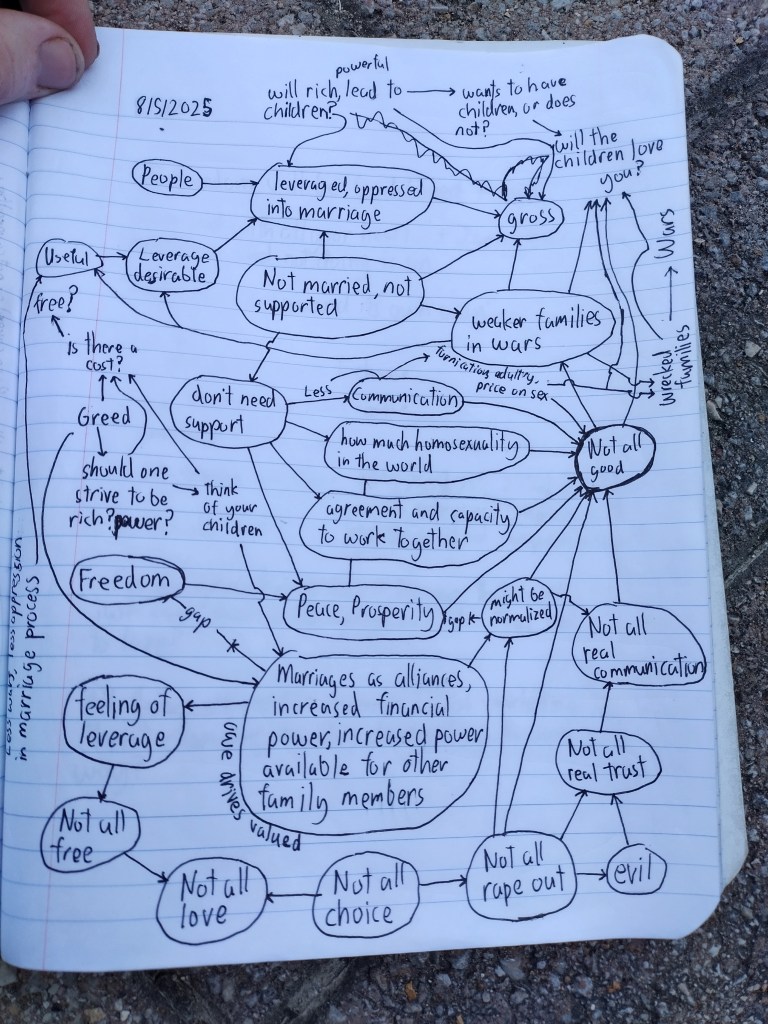 powerful
will rich, lead to
children?
wants to have
children, or does
not?
8/5/2025
will the
children love
you?
People
leveraged, oppressed
into marriage
gross
Useful
Leverage
desirable
Not married, not
supported
weaker families
in wars
Wars
Wrecked
families
free?
is there a
cost?
Greed
don't need
support
Less
Communication
furnication, adultry,
price on sex
how much homosexuality
in the world
Not all
good
should one
strive to be
rich? power?
think
of your
children
agreement and capacity
to work together
Freedom
gap
Peace, Prosperity
gap
might be
normalized
Not all
real
communication
Less wars, less oppression
in marriage process
Marriages as alliances,
increased financial
power, increased power
available for other
family members
feeling of
leverage
valued
Not all
real trust
Not all
free
Not all
love
Not all
choice
Not all
rape out
evil